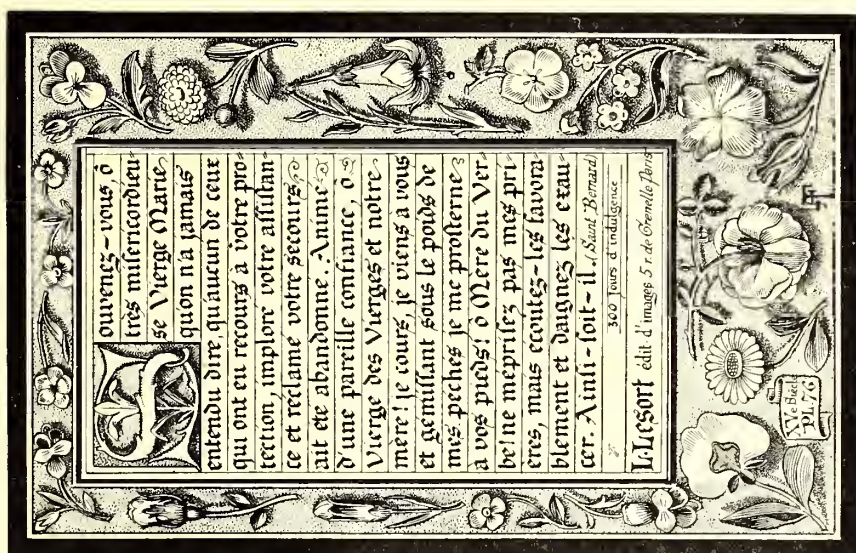 Souvenez-vous ô
très miſéricordieu-
se Vierge Marie
qu'on n'a jamais
entendu dire, qu'aucun de ceux
qui ont eu recours à votre pro-
tection, imploré votre aſſiſtan-
ce et réclamé votre secours,
ait été abandonné. Animé
d'une pareille confiance, ô
Vierge des Vierges et notre
mère! je cours, je viens à vous
et gémiſſant sous le poids de
mes péchés je me proſterne
à vos pieds! ô Mère du Ver-
be! ne mépriſez pas mes pri-
ères, mais écoutez-les favora-
blement et daignez les exau-
cer. Ainſi-ſoit-il. (Saint Bernard)
300 jours d'indulgence
L. Lesort édit. d'images 5 r. de Grenelle Paris
XVe Siècle
PL. 76